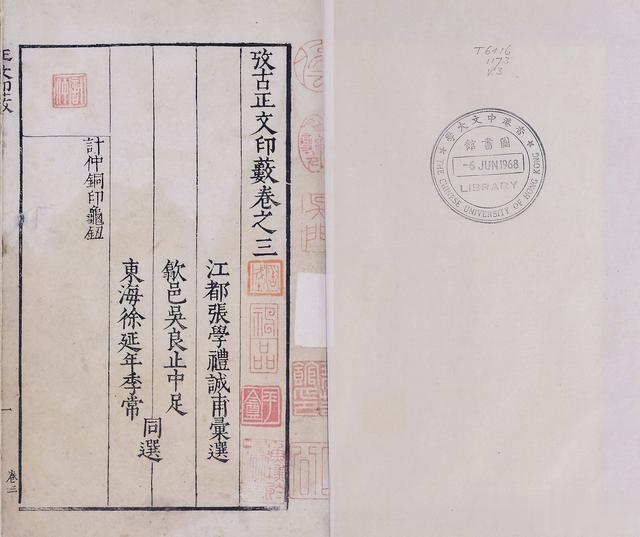 攷古正文印藪卷之三
江都張學禮誠甫彙選
歙邑吳良止中足
東海徐延年季常
同選
計仲銅印龜鈕
正文印藪
一
卷三
T6416
1173
V.3
香港中文大學
圖書館
-6 JUN 1968
LIBRARY
THE CHINESE UNIVERSITY OF HONG KONG